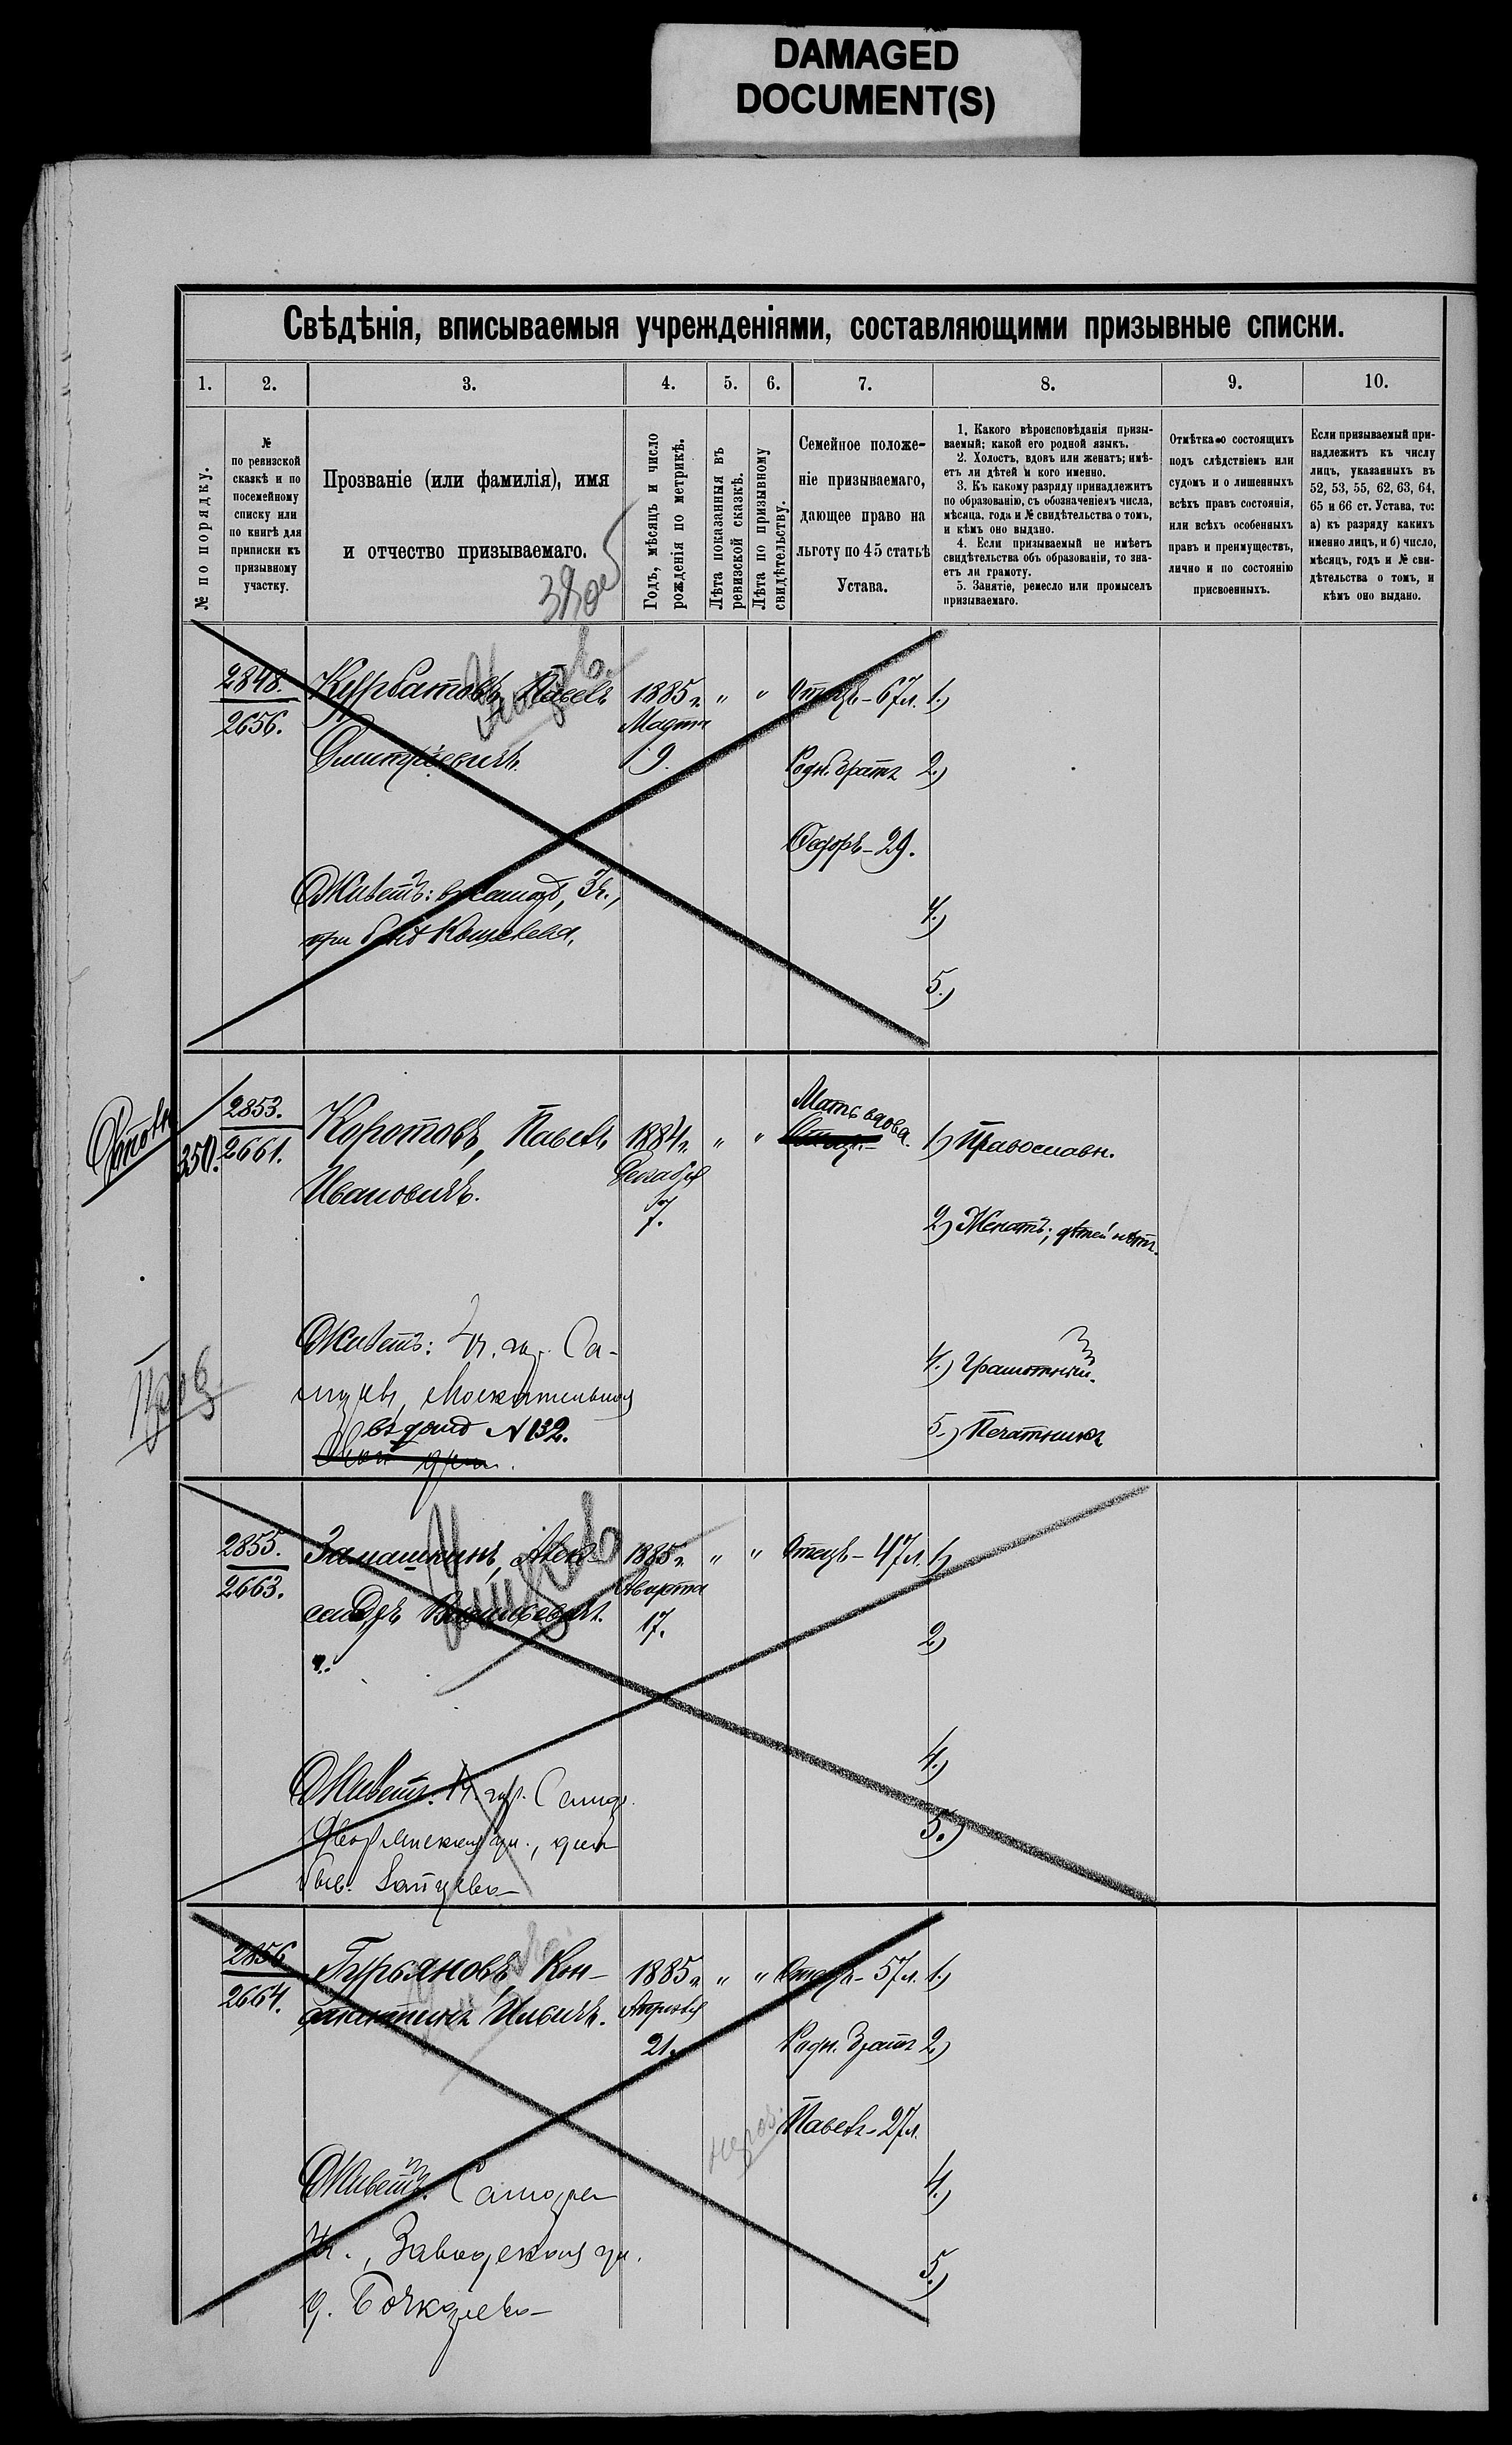 DAMAGED
DOCUMENT(S)
Свѣдѣнія, вписываемыя учрежденіями, составляющими призывные списки.
1. 2. 3. 4. 5. 6. 7. 8. 9. 10.
№ по порядку.
№
по ревизской
сказкѣ и по
посемейному
списку или
по книгѣ для
приписки къ
призывному
участку.
Прозваніе (или фамилія), имя
и отчество призываемаго.
Годъ, мѣсяцъ и число
рожденія по метрикѣ.
Лѣта показанныя въ
ревизской сказкѣ.
Лѣта по призывному
свидѣтельству.
Семейное положе-
ніе призываемаго,
дающее право на
льготу по 45 статьѣ
Устава.
1. Какого вѣроисповѣданія призы-
ваемый; какой его родной языкъ.
2. Холостъ, вдовъ или женатъ; имѣ-
етъ ли дѣтей и кого именно.
3. Къ какому разряду принадлежитъ
по образованію, съ обозначеніемъ числа,
мѣсяца, года и № свидѣтельства о томъ,
и кѣмъ оно выдано.
4. Если призываемый не имѣетъ
свидѣтельства объ образованіи, то зна-
етъ ли грамоту.
5. Занятіе, ремесло или промыселъ
призываемаго.
Отмѣтка о состоящихъ
подъ слѣдствіемъ или
судомъ и о лишенныхъ
всѣхъ правъ состоянія,
или всѣхъ особенныхъ
правъ и преимуществъ,
лично и по состоянію
присвоенныхъ.
Если призываемый при-
надлежитъ къ числу
лицъ, указанныхъ въ
52, 53, 55, 62, 63, 64,
65 и 66 ст. Устава, то:
а) къ разряду какихъ
именно лицъ, и б) число,
мѣсяцъ, годъ и № сви-
дѣтельства о томъ, и
кѣмъ оно выдано.
2848. Курбатовъ, Павелъ 1885 г. " " Отецъ - 67 л. 1.)
2656. Дмитріевичъ. Марта
9. Родн. братъ 2.)
Ѳедоръ - 29.
Живетъ: въ Самарѣ, 3 ч., 4.)
при
5.)
350. 2853. Коротовъ, Павелъ 1884 г. " " Мать вдова. 1.) Православн.
2661. Ивановичъ. Декабря Отецъ-
7. 2.) Женатъ; дѣтей нѣтъ.
Живетъ: 4 ч. гор. Са- 4.) Грамотный.
мары, Москательная
въ домѣ № 132. 5.) Печатникъ
2855. Замашкинъ, Алек- 1885 г. " " Отецъ - 47 л. 1.)
2663. сандръ Васильевичъ. Марта
17. 2.)
Живетъ: гор. Самар. 4.)
Дворянская ул., домъ 5.)
быв. Зайцева
2856 Гурьяновъ, Кон- 1885 г. " " Отецъ - 57 л. 1.)
2664. стантинъ Ильичъ. Апрѣля
21. Родн. братъ 2.)
Павелъ - 27 л.
Живетъ: Самара 4.)
4 ч., Заводская ул. 5.)
д. Бочкарева